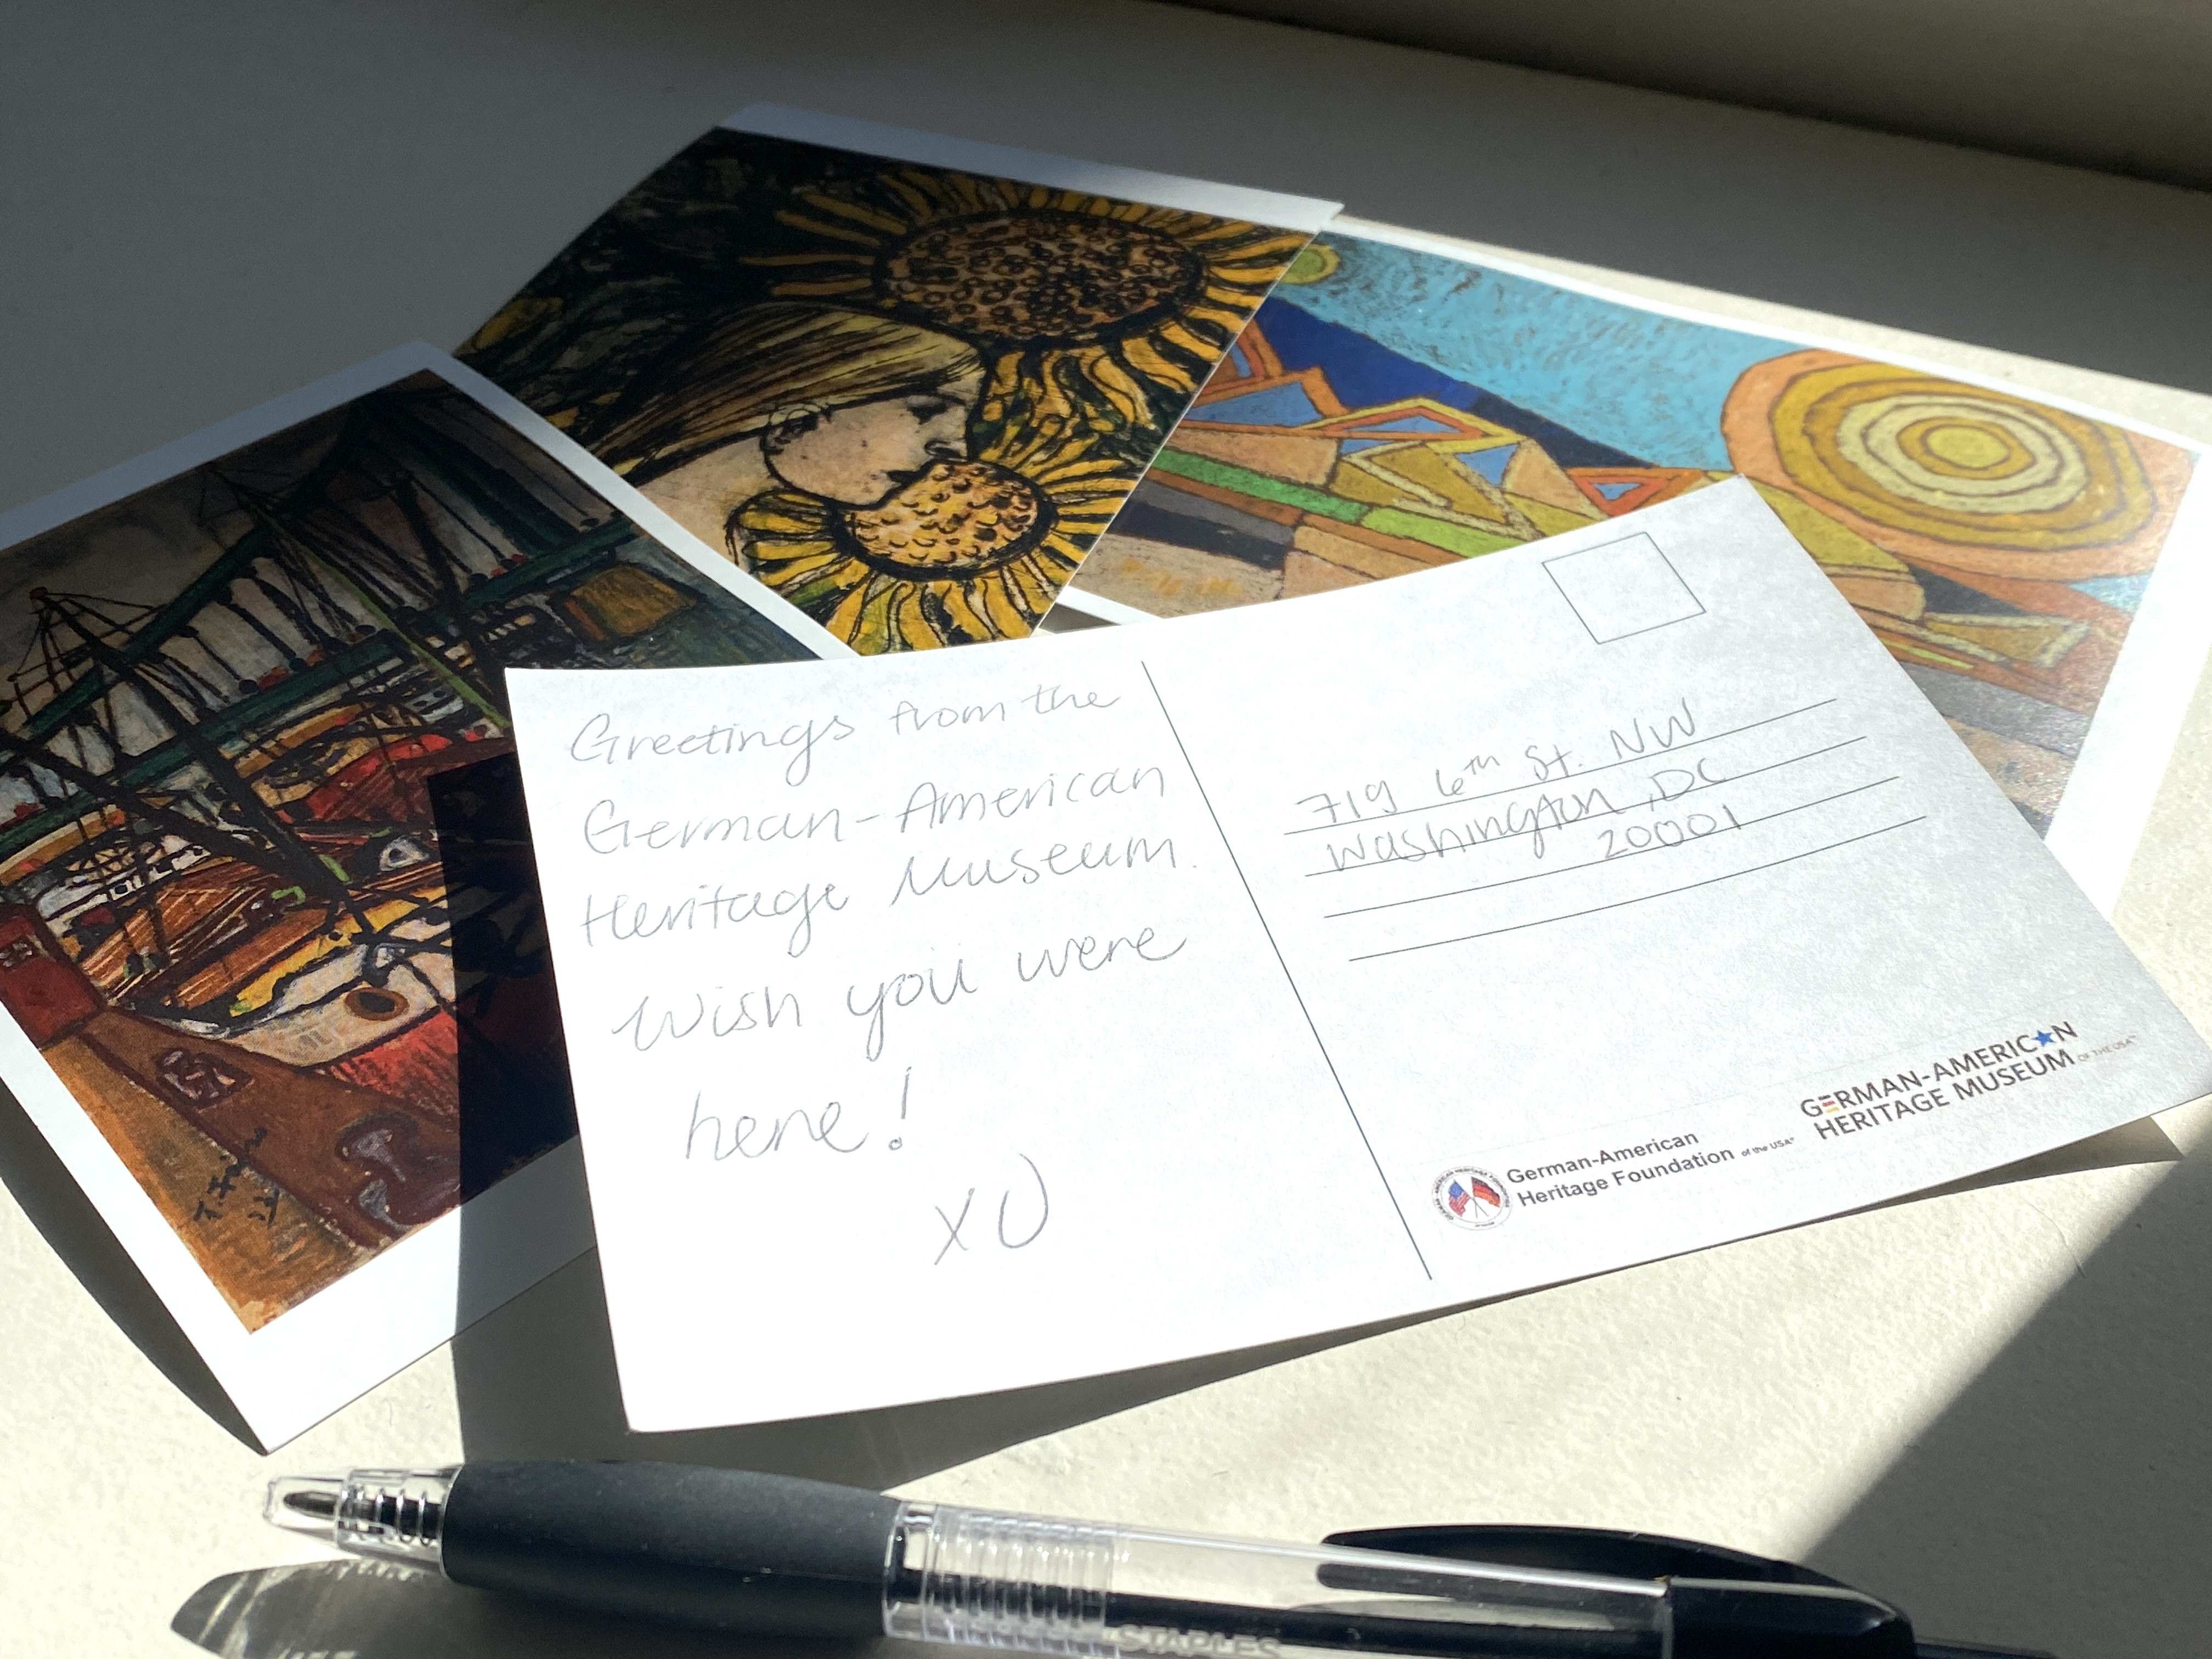 Greetings from the
German-American
Heritage Museum.
Wish you were
here!
XO
719 6th St. NW
Washington, DC
20001
German-American
Heritage Foundation of the USA®
GERMAN-AMERICAN
HERITAGE MUSEUM OF THE USA™
STAPLES